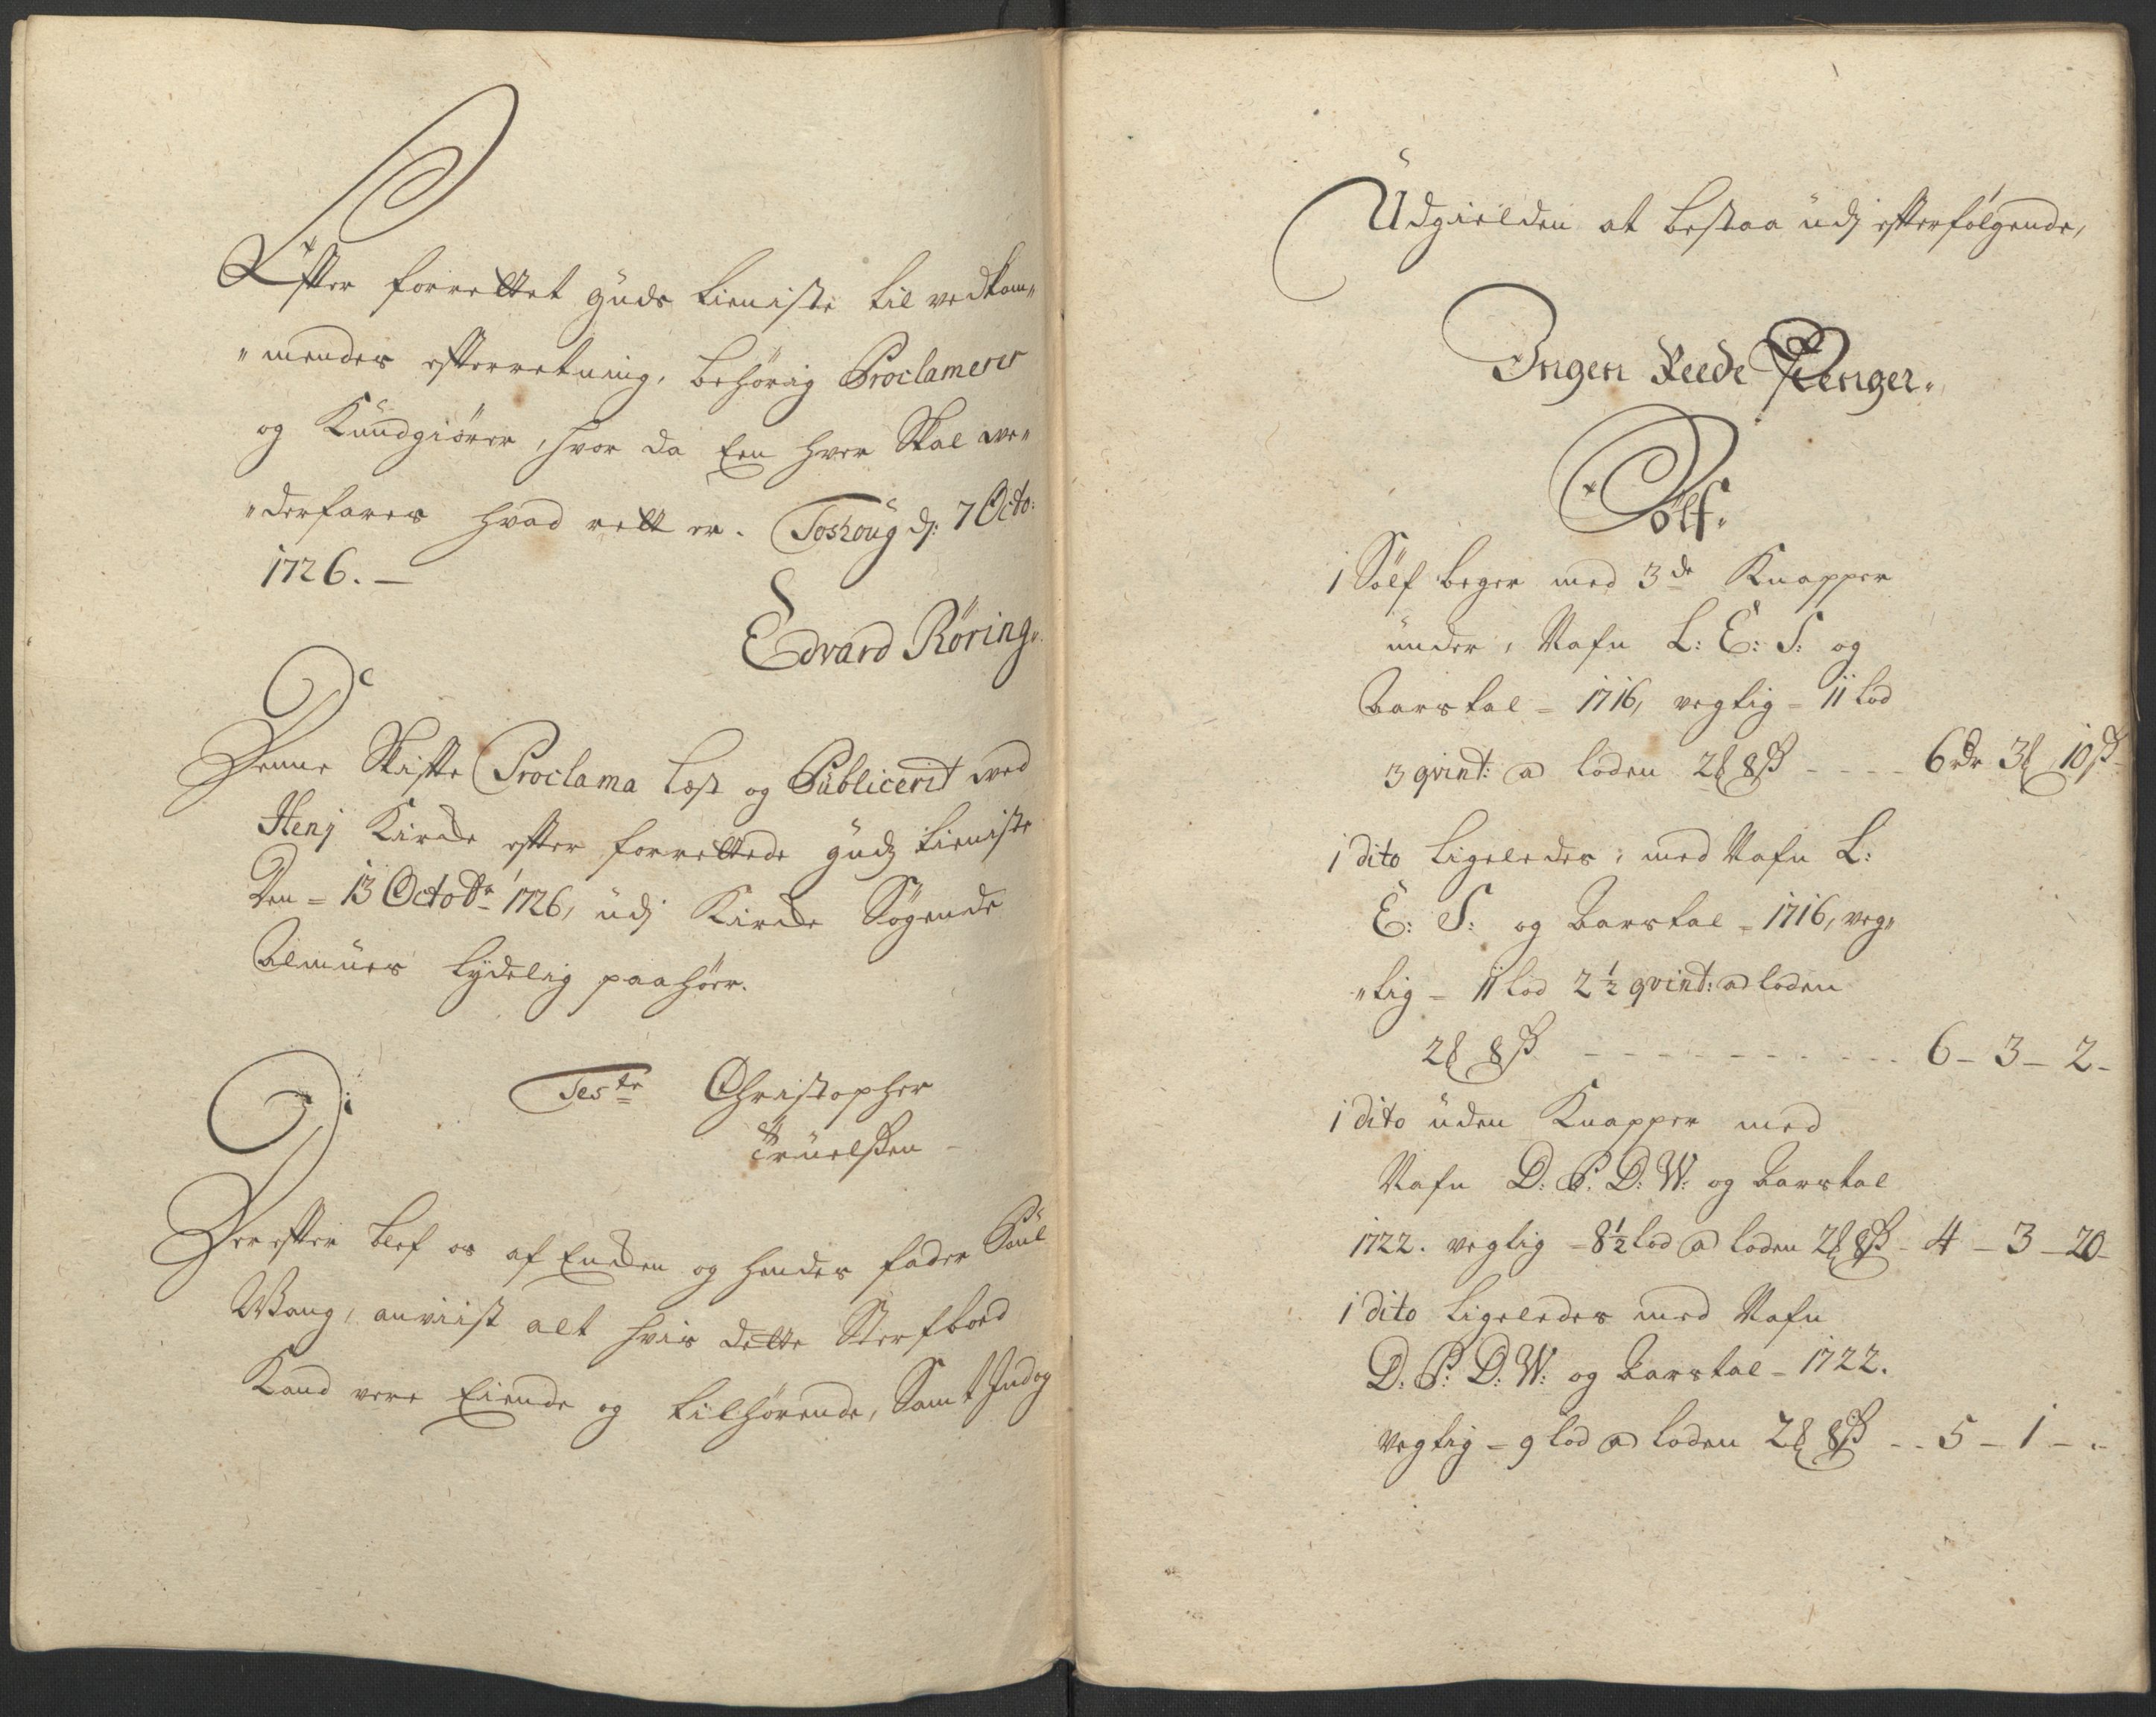 Efter forrettet guds tieniste til vedkom„
„mendes efterretning, behørig Proclameres
og Kundgiøres, hvor da Een hver Skal we„
„derfares hvad rett er. Toshoug dj: 7 Octo:
1726. —
Edvard Röring„
Denne Skifte Proclama Lest og Publicerit ved
Henj Kircke efter forrettede gudz tieniste
Den = 13 Octobr 1726, udj Kircke Søgende
Almues lydelig paahør.
Teste Christopher
Truelsen —
Der efter blef os af Encken og hendes fader Poul
Wang, anviist alt hvis dette Sterfboed
Kand vere Eiende og tilhørende, Samt Ind og
Udgielden at bestaa udj efterfølgende,
Ingen Reede Penger„
Sølf„
1 Sølf beger med 3de Knapper
under, Nafn L: E: S: og
Aarstal = 1716, vegtig = 11 lod
3 qvint: a loden 2 8ß - - - - 6 rdr 3 10ß
1 dito Ligeledes, med Nafn L:
E: S: og Aarstal = 1716, veg„
„tig = 11 lod 2½ qvint: a loden
2 8ß - - - - - - - - - - 6 – 3 – 2 –
1 dito uden Knapper med
Nafn D: P: D: W: og Aarstal
1722. vegtig = 8½ lod a loden 2 8ß – 4 – 3 – 20 –
1 dito Ligeledes med Nafn
D: P: D: W: og Aarstal = 1722.
vegtig = 9 lod a loden 2 8ß - - 5 – 1 – „ –